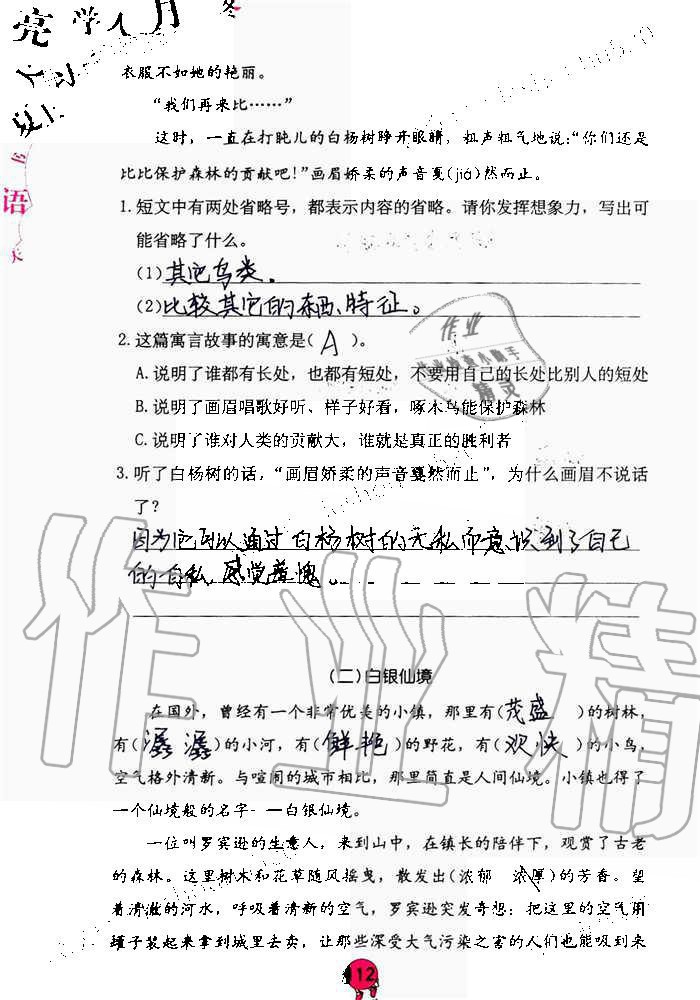 亮学人月
冬
语
衣服不如她的艳丽。
“我们再来比……”
这时，一直在打盹儿的白杨树睁开眼睛，粗声粗气地说：“你们还是
比比保护森林的贡献吧！”画眉娇柔的声音戛(jiá)然而止。
1. 短文中有两处省略号，都表示内容的省略。请你发挥想象力，写出可
能省略了什么。
(1)其它鸟类。
(2)比较其它的东西、特征。
2. 这篇寓言故事的寓意是( A )。
A. 说明了谁都有长处，也都有短处，不要用自己的长处比别人的短处
B. 说明了画眉唱歌好听、样子好看，啄木鸟能保护森林
C. 说明了谁对人类的贡献大，谁就是真正的胜利者
3. 听了白杨树的话，“画眉娇柔的声音戛然而止”，为什么画眉不说话
了？
因为它可以通过白杨树的无私而意识到了自己
的自私，感觉羞愧
(二)白银仙境
在国外，曾经有一个非常优美的小镇，那里有(茂盛)的树林，
有(潺潺)的小河，有(鲜艳)的野花，有(欢快)的小鸟，
空气格外清新。与喧闹的城市相比，那里简直是人间仙境。小镇也得了
一个仙境般的名字- —白银仙境。
一位叫罗宾逊的生意人，来到山中，在镇长的陪伴下，观赏了古老
的森林。这里树木和花草随风摇曳，散发出(浓郁 浓厚)的芳香。望
着清澈的河水，呼吸着清新的空气，罗宾逊突发奇想：把这里的空气用
罐子装起来拿到城里去卖，让那些深受大气污染之害的人们也能吸到来
12
作业
精灵
作业精